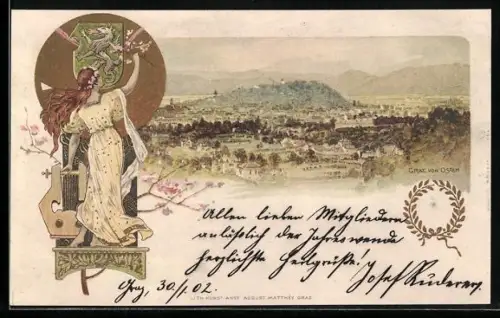 GRAZ VON OSTEN
Allen lieben Mitgliedern
anläßlich der Jahreswende
herzlichste Heilgrüße.
Josef
Graz, 30/1. 02.
LITH. KUNST-ANST. AUGUST MATTHEY, GRAZ